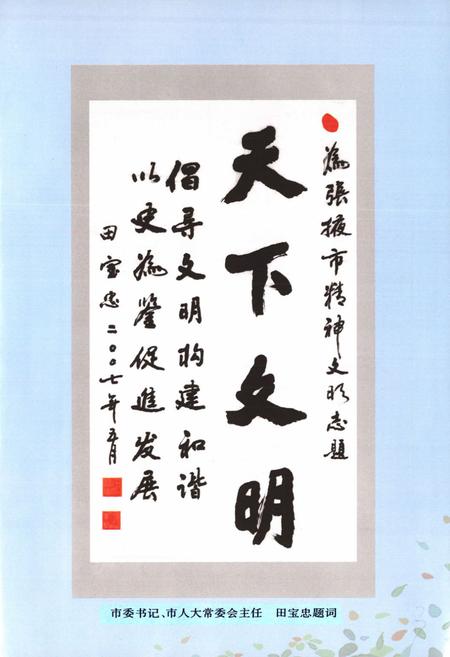 為張掖市精神文明志題
天下文明
倡导文明构建和谐
以史為鉴促進发展
田宝忠二〇〇七年五月
市委书记、市人大常委会主任 田宝忠题词